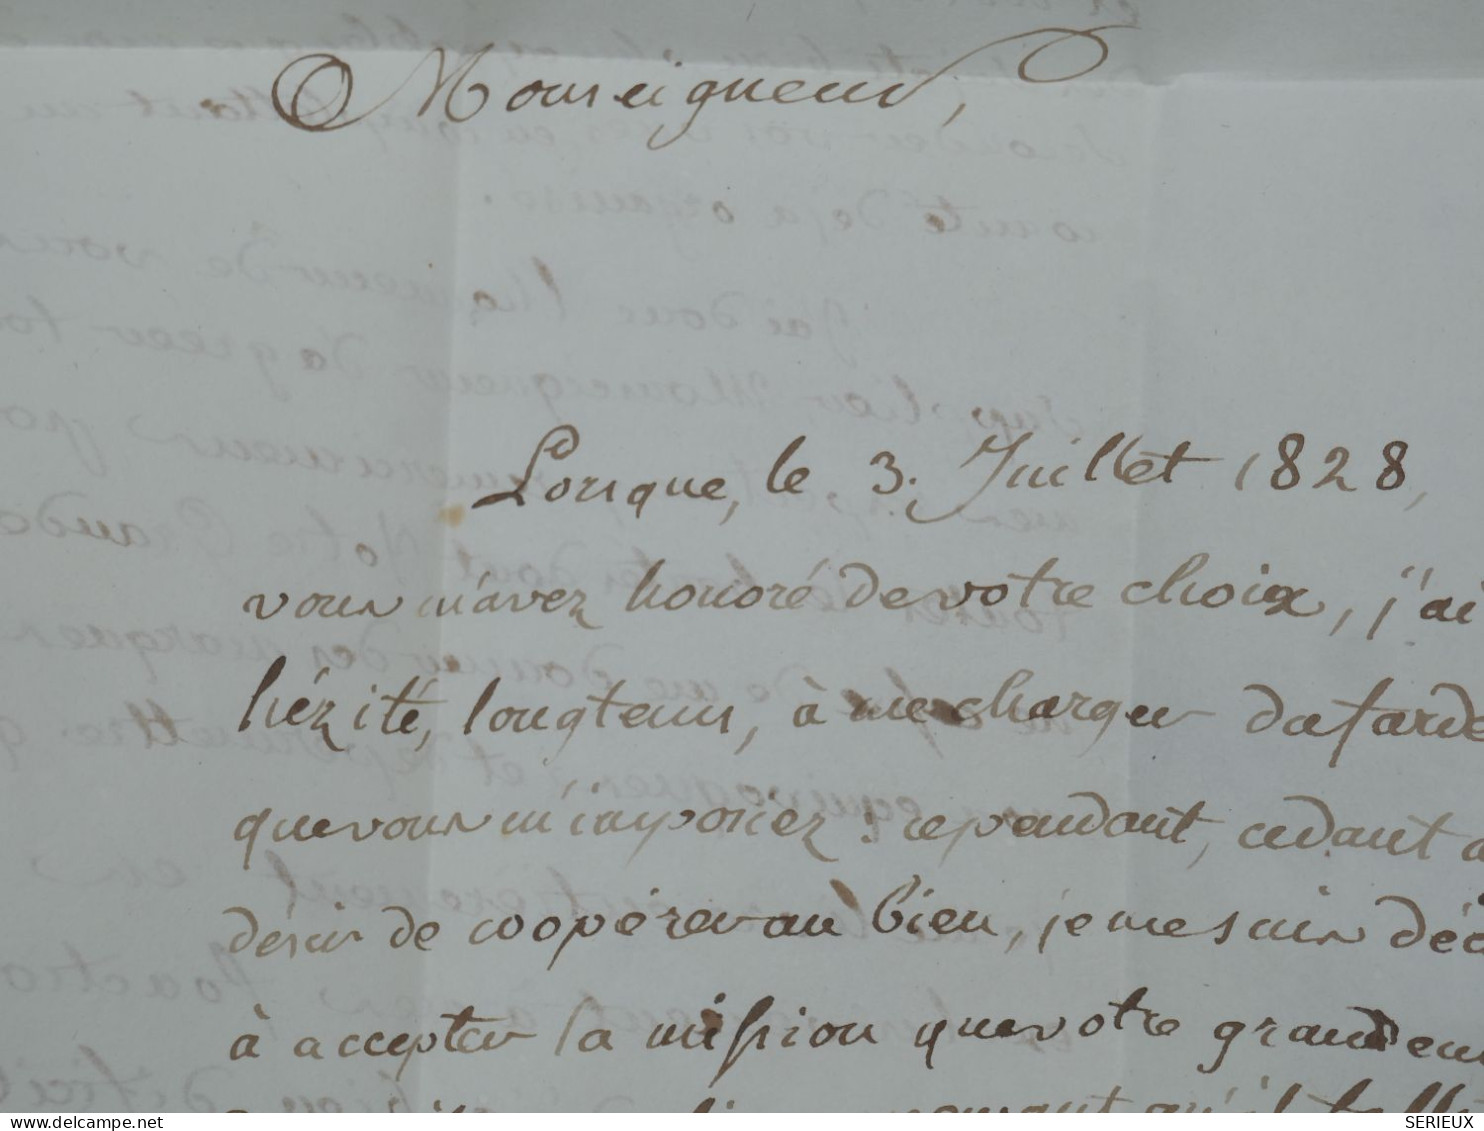 Monseigneur,
Lorsque, le 3. Juillet 1828,
vous m'avez honoré de votre choix, j'ai
hézité, longtems, à me charger du farde
que vous m'imposiez : cependant, cedant a
désir de coopérer au bien, je me suis déc
à accepter la mission que votre grandeu
delcampe.net
SERIEUX